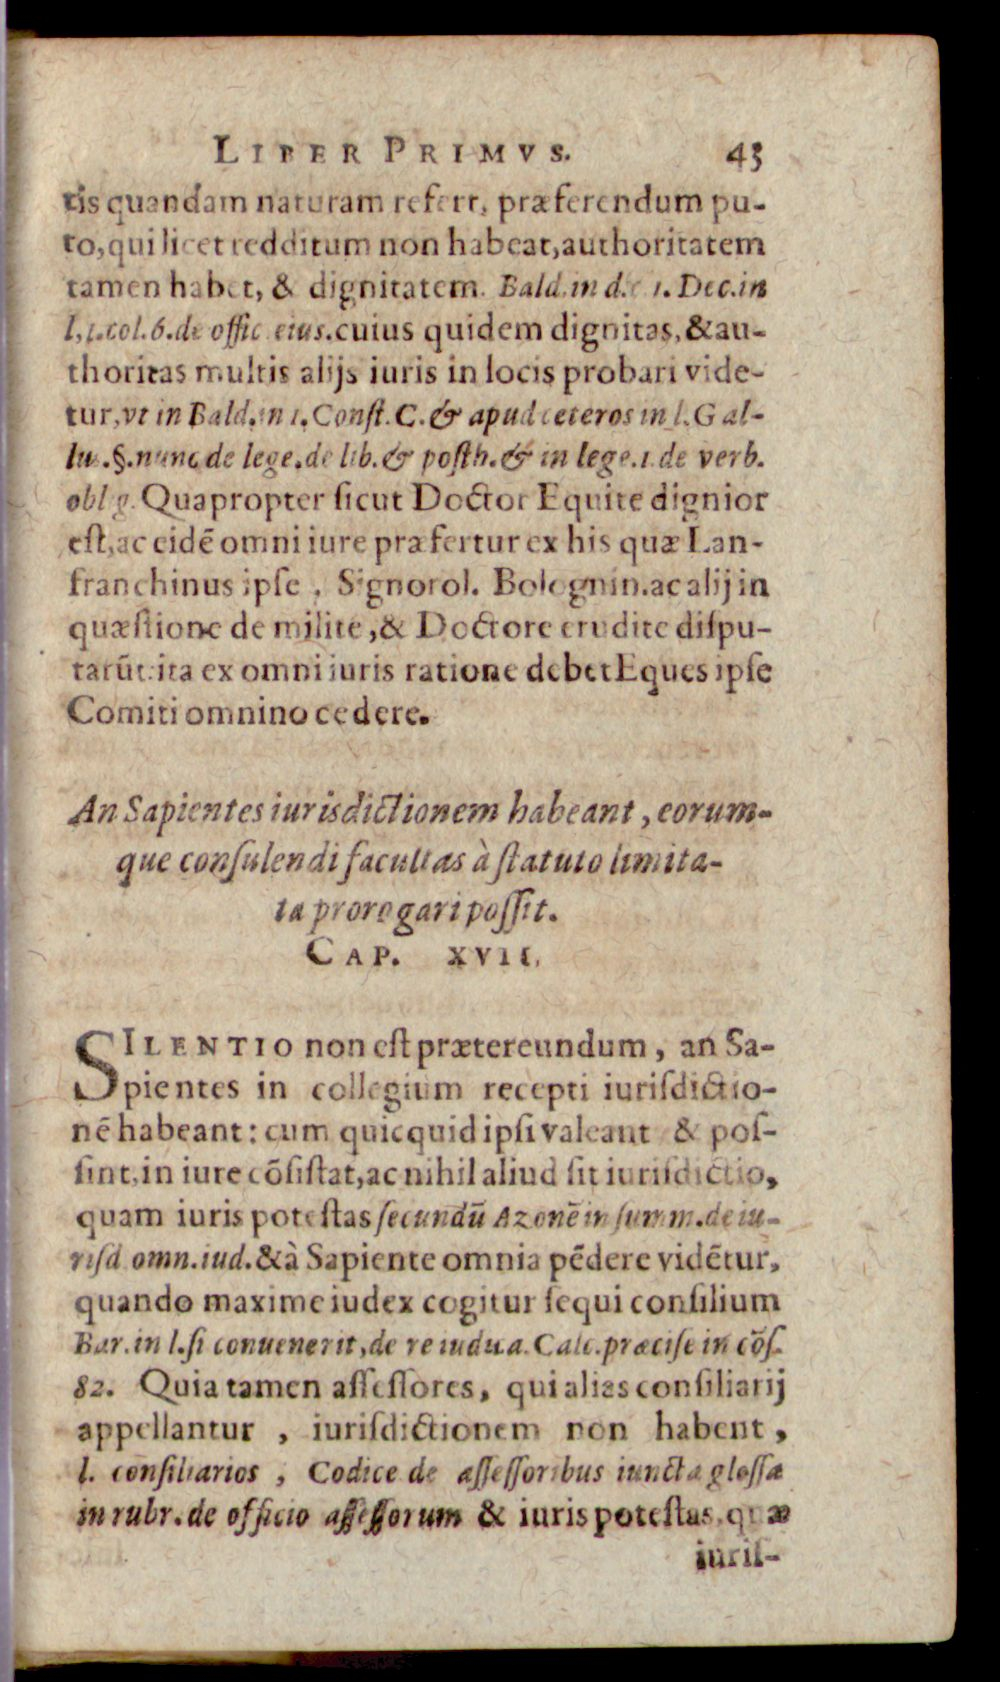 LIBER PRIMVS. 43
tis quandam naturam refert, præferendum pu-
to, qui licet redditum non habeat, authoritatem
tamen habet, & dignitatem. Bald. in d. c. 1. Dec. in
l. 1. col. 6. de offic. eius. cuius quidem dignitas, & au-
thoritas multis alijs iuris in locis probari vide-
tur, vt in Bald. in 1. Const. C. & apud ceteros in l. Gal-
lus. §. nunc de lege. de lib. & posth. & in lege. 1. de verb.
oblig. Quapropter sicut Doctor Equite dignior
est, ac eidē omni iure præfertur ex his quæ Lan-
franchinus ipse, Signorol. Bolognin. ac alij in
quæstione de milite, & Doctore erudite dispu-
tarūt: ita ex omni iuris ratione debet Eques ipse
Comiti omnino cedere.
An Sapientes iurisdictionem habeant, eorum-
que consulendi facultas à statuto limita-
ta prorogari possit.
CAP. XVII.
SILENTIO non est prætereundum, an Sa-
pientes in collegium recepti iurisdictio-
nē habeant: cum quicquid ipsi valeant & pos-
sint, in iure cōsistat, ac nihil aliud sit iurisdictio,
quam iuris potestas secundū Azonē in summ. de iu-
risd. omn. iud. & à Sapiente omnia pēdere vidētur,
quando maxime iudex cogitur sequi consilium
Bar. in l. si conuenerit, de re iudica. Calc. præcise in cōs.
82. Quia tamen assessores, qui alias consiliarij
appellantur, iurisdictionem non habent,
l. consiliarios, Codice de assessoribus iuncta glossa
in rubr. de officio assessorum & iuris potestas, quæ
iuris-